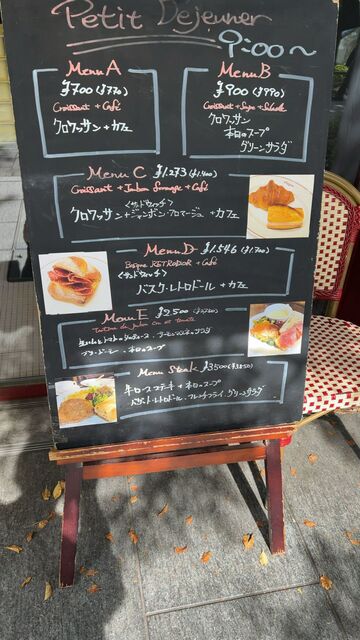 Petit Dejeuner
9:00〜
Menu A
¥700 (¥770)
Croissant + Café
クロワッサン + カフェ
Menu B
¥900 (¥990)
Croissant + Supe + Salade
クロワッサン
本日のスープ
グリーンサラダ
Menu C ¥1.273 (¥1.400)
Croissant + Jambon Fromage + Café
<サンドウィッチ>
クロワッサン + ジャンボン・フロマージュ + カフェ
Menu D ¥1.546 (¥1.700)
Basque RETRODOR + Café
<サンドウィッチ>
バスク・レトロドール + カフェ
Menu E ¥2.500
本日のスープ
Menu Steak ¥3500 (¥3850)
牛ロースステーキ + 本日のスープ
バゲットレトロドール、フレンチフライ、グリーンサラダ